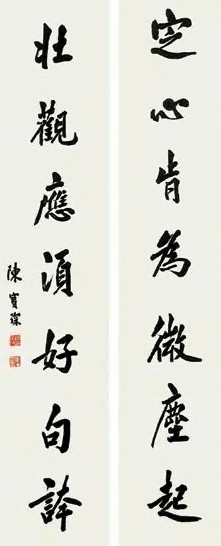 定心肯為微塵起
壯觀應須好句誇
陳寶琛